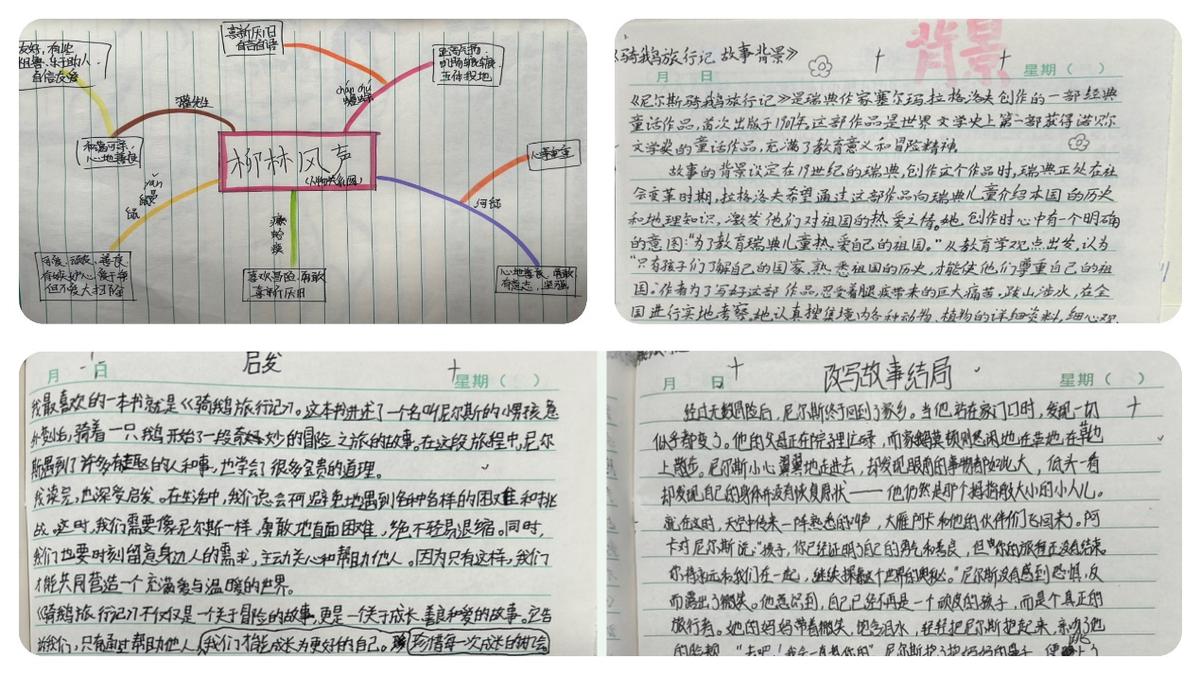 喜新厌旧
自言自语
友好,有些
自信友爱
chán chú
蟾蜍
獾先生
柳林风声
(人物关系图)
和蔼可亲,
心地善良
心事重重
yǎn
鼹
鼠
河鼠
癞蛤蟆
可爱、顽皮、善良
但不爱大扫除
喜欢冒险、勇敢
喜新厌旧
心地善良、勇敢
有意志、坚强
背景
《骑鹅旅行记 故事背景》
月 日 星期( )
《尼尔斯骑鹅旅行记》是瑞典作家塞尔玛·拉格洛夫创作的一部经典
童话作品,首次出版于1907年。这部作品是世界文学史上第一部获得诺贝尔
文学奖的童话作品,充满了教育意义和冒险精神。
故事的背景设定在19世纪的瑞典,创作这个作品时,瑞典正处在社
会变革时期,拉格洛夫希望通过这部作品向瑞典儿童介绍本国的历史
和地理知识,激发他们对祖国的热爱之情。她创作时心中有一个明确
的意图:“为了教育瑞典儿童热爱自己的祖国。”从教育学观点出发,认为
“只有孩子们了解自己的国家,熟悉祖国的历史,才能使他们尊重自己的祖
国。作者为了写好这部作品,忍受着腿疾带来的巨大痛苦,跋山涉水,在全
国进行实地考察。她认真搜集境内各种动物、植物的详细资料,细心观
启发
月 日 星期( )
我最喜欢的一本书就是《骑鹅旅行记》。这本书讲述了一个名叫尼尔斯的小男孩意
外变小后,骑着一只鹅开始了一段奇妙的冒险之旅的故事。在这段旅程中,尼尔
斯遇到了许多有趣的人和事,也学会了很多宝贵的道理。
我读完,也深受启发。在生活中,我们总会不可避免地遇到各种各样的困难和挑
战。这时,我们需要像尼尔斯一样,勇敢地直面困难,绝不轻易退缩。同时,
我们也要时刻留意身边人的需求,主动关心和帮助他人。因为只有这样,我们
才能共同营造一个充满爱与温暖的世界。
《骑鹅旅行记》不仅仅是一个关于冒险的故事,更是一个关于成长、善良和爱的故事。它告
诉我们,只有通过帮助他人,我们才能成长为更好的自己。珍惜每一次成长的机会
改写故事结局
月 日 星期( )
经过无数冒险后,尼尔斯终于回到了家乡。当他站在家门口时,发现一切
似乎都变了。他的父母正在院子里忙碌,而家鹅莫顿则悠闲地在草地
上散步。尼尔斯小心翼翼地走进去,却发现眼前的事物都如此大,低头一看
却发现自己的身体并没有恢复原状——他仍然是那个拇指般大小的小人儿。
就在这时,天空中传来一阵熟悉的叫声,大雁阿卡和他的伙伴们飞回来了。阿
卡对尼尔斯说:“孩子,你已经证明了自己的勇气和善良,但你的旅程还没有结束。
你将永远和我们在一起,继续探索这个世界的奥秘。”尼尔斯没有感到恐惧,反
而露出了微笑。他意识到,自己已经不再是一个顽皮的孩子,而是个真正的
旅行者。她的妈妈带着微笑,饱含泪水,轻轻把尼尔斯抱起来,亲吻了他
的脸颊。“去吧!我会一直爱你的”